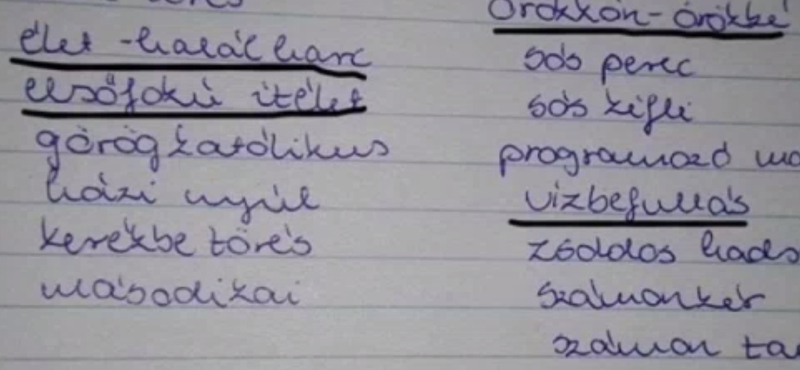 élet-halál harc
elsőfokú ítélet
görög katólikus
házi nyúl
kerékbe törés
másodikai
örökkön-örökké
sós perec
sós kifli
programozó
vízbefullás
zsoldos
számonkér
számon